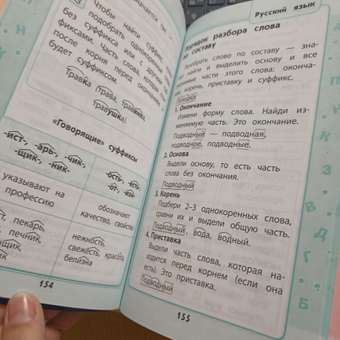 Чтобы найти суффикс,
подобрать
без суффикса или с другим
после корня перед
будет суффиксом.
Травка
трава, травяная,
травушка
«Говорящие» суффиксы
-ист-, -арь-, -чик-,
-щик-, -ник-
-ость-,
-от-,
указывают на
профессию
обозначает
качество,
пекарь,
печник,
нежность,
свежесть,
белизна
154
Русский язык
Порядок разбора слова
по составу
Разобрать слово по составу — зна-
найти и выделить основу и все
части этого слова: оконча-
корень, приставку и суффикс.
1. Окончание
Измени форму слова. Найди из-
меняемую часть. Это окончание.
Подводный — подводная,
подводное, подводные.
2. Основа
Выдели основу, то есть часть
слова без окончания.
Подводный
3. Корень
Подбери 2–3 однокоренных слова,
сравни их и выдели общую часть.
Подводный, вода, водный.
4. Приставка
Выдели часть слова, которая на-
ходится перед корнем (если она
есть). Это приставка.
Подводный
155